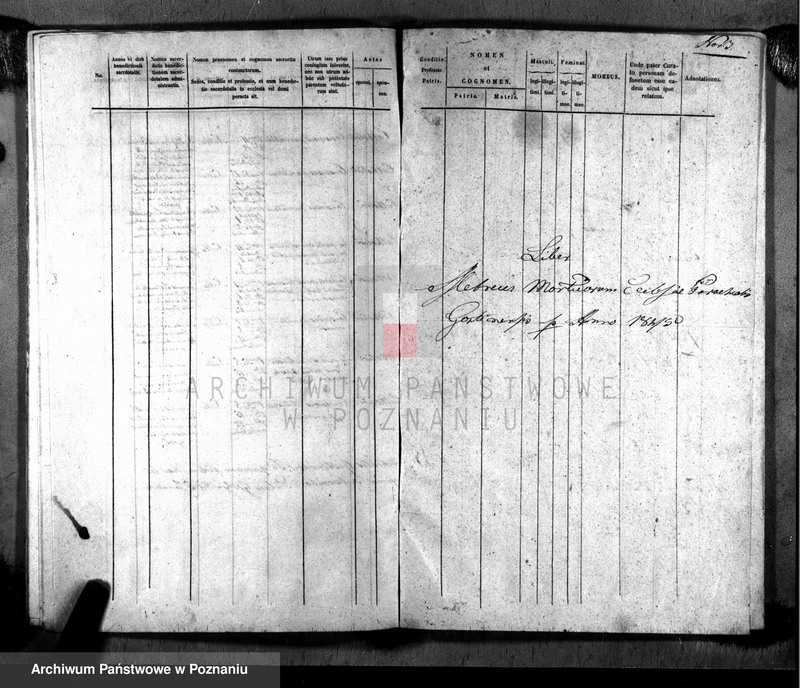 No.
Annus et dies benedictionis sacerdotalis.
Nomen sacerdotis benedictionem sacerdotalem administrantis.
Nomen praenomen et cognomen sacrorum conjunctorum.
Sedes, conditio et professio, et num benedictio sacerdotalis in ecclesia vel domi peracta sit.
Utrum iam prius conjugium inierint, nec non utrum adhuc sub potestate parentum vel tutorum sint.
Aetas
sponsi.
sponsae.
Conditio, Professio Patris.
NOMEN
et
COGNOMEN.
Patris.
Matris.
Masculi.
legitimi.
illegitimi.
Feminae.
legitimae.
illegitimae.
MORBUS.
Unde pater Curatus personam defunctam eum eadem sicut ipse relatum.
Adnotationes.
Liber
Metrices Mortuorum Ecclesiae Parochialis
Anno
ARCHIWUM PAŃSTWOWE
W POZNANIU
Archiwum Państwowe w Poznaniu